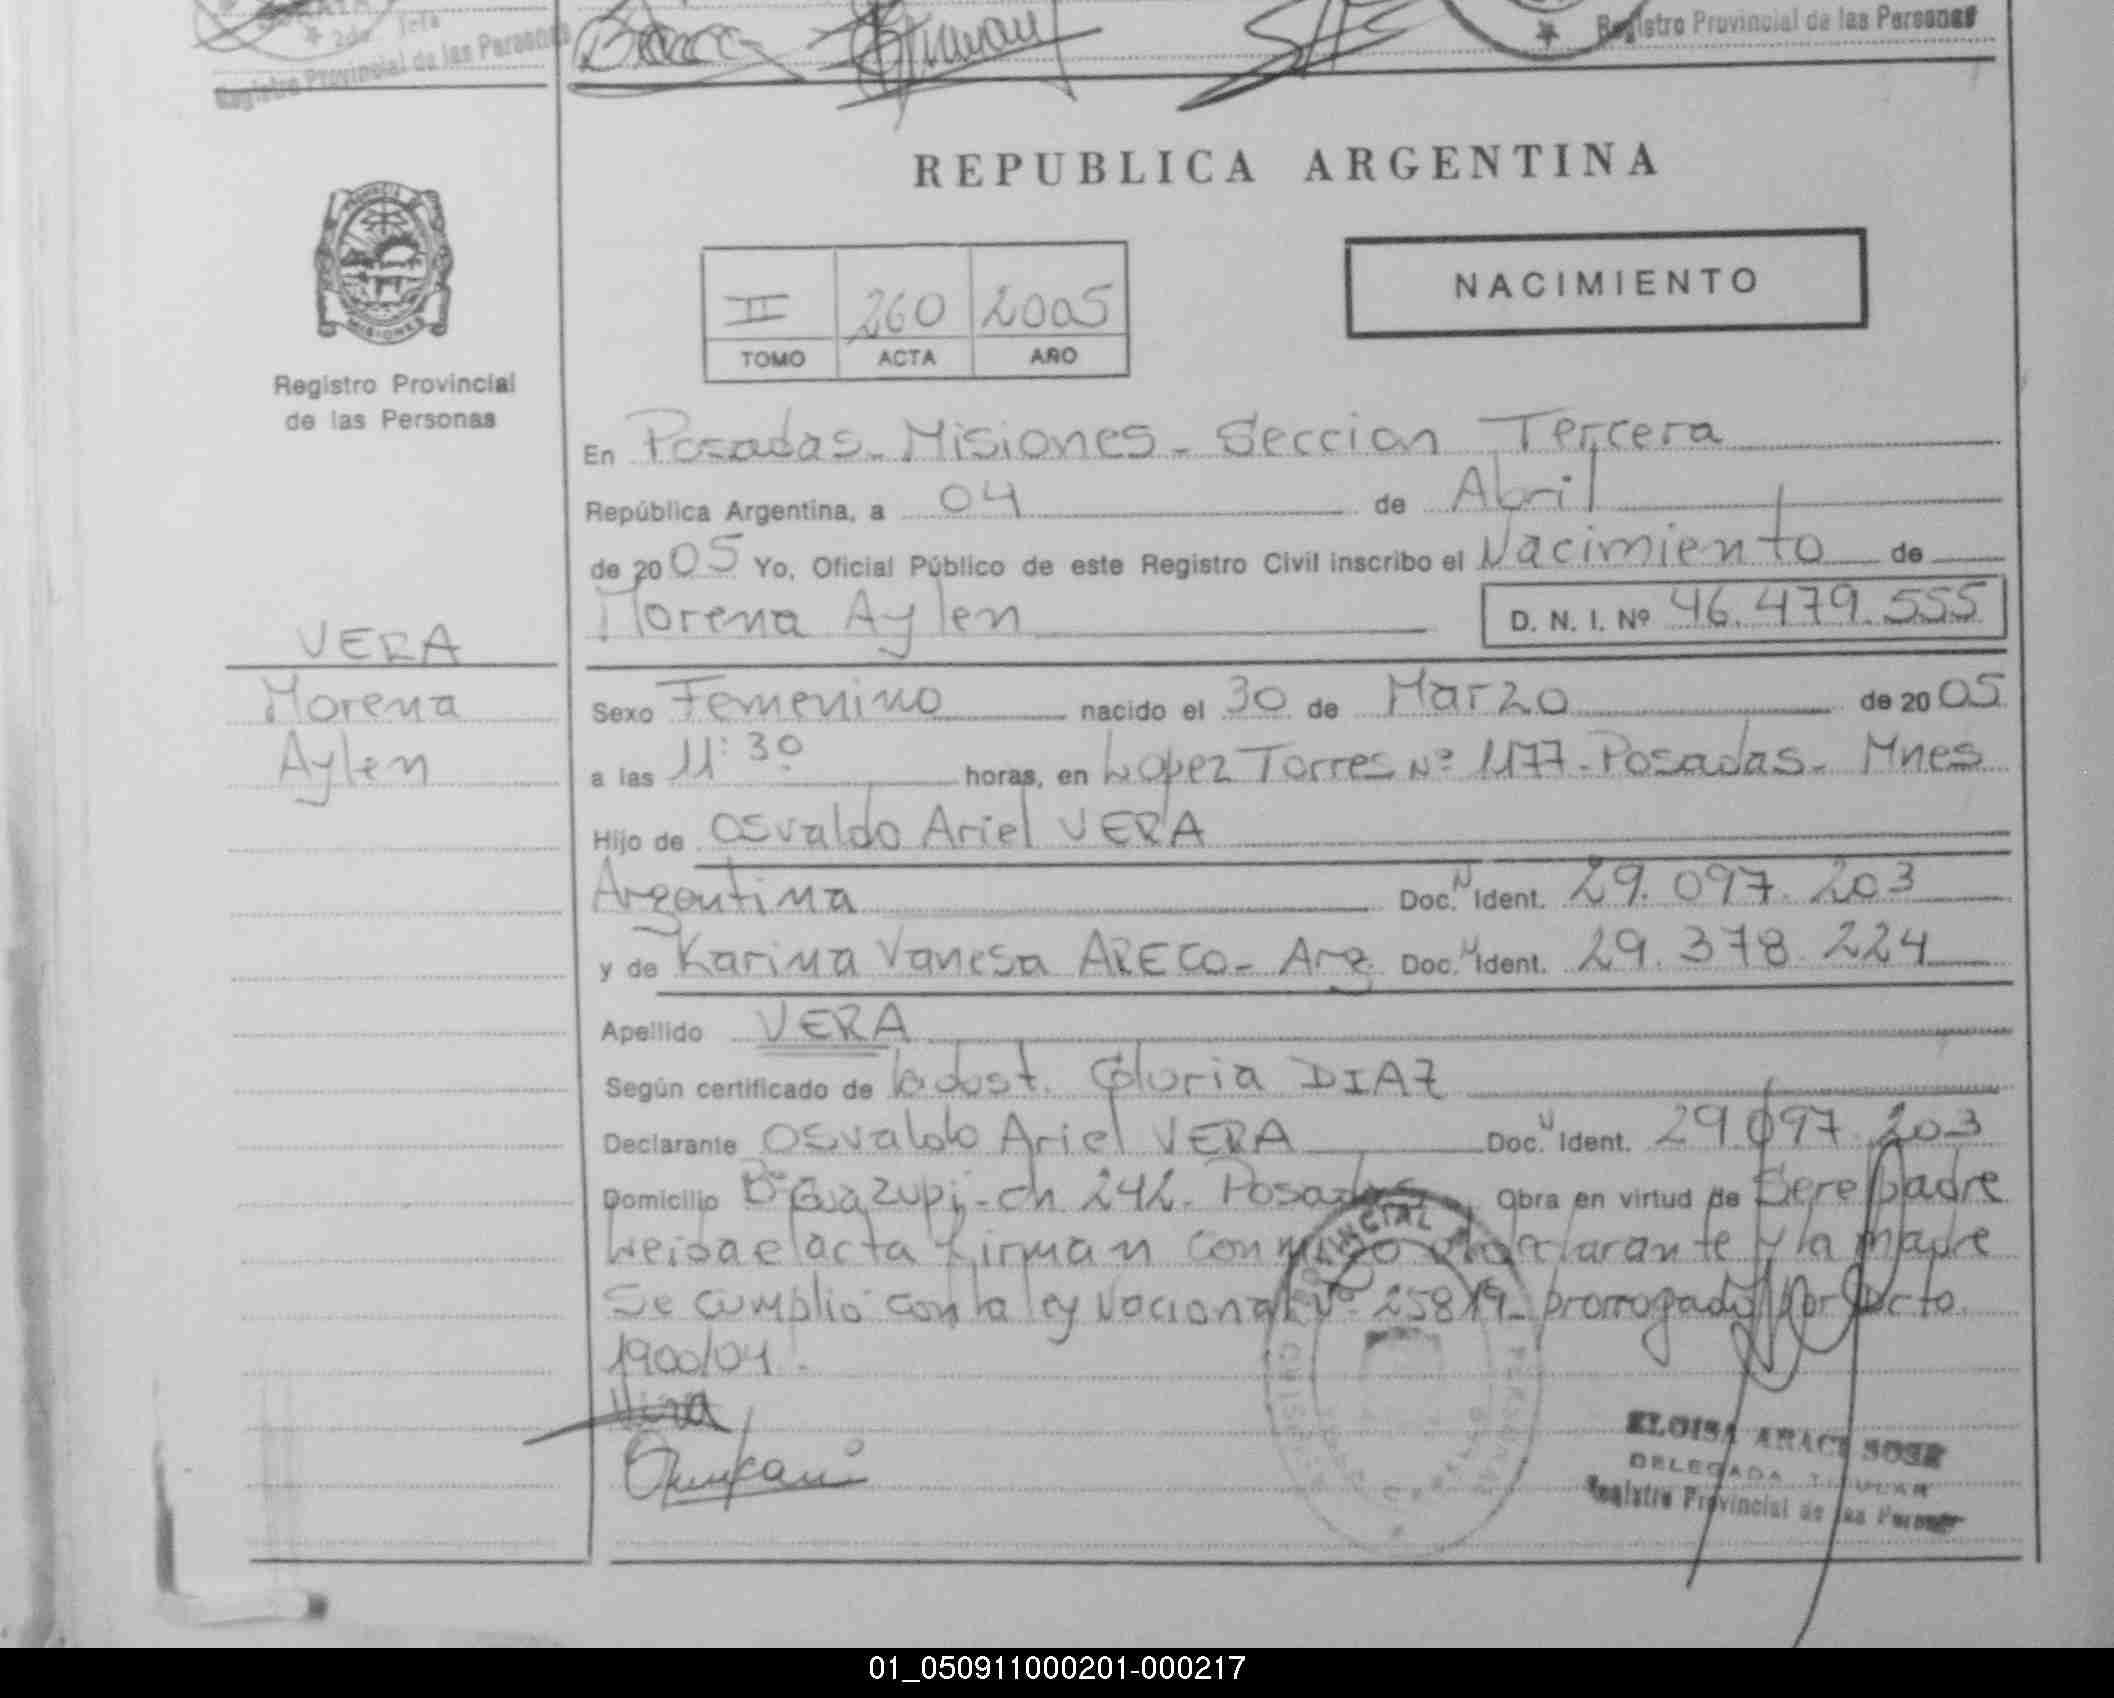 2da Jefa
Registro Provincial de las Personas
Registro Provincial de las Personas
REPUBLICA ARGENTINA
PROVINCIA
MISIONES
Registro Provincial
de las Personas
NACIMIENTO
II 260 2005
TOMO ACTA AÑO
En Posadas - Misiones - Seccion Tercera
República Argentina, a 04 de Abril
de 2005 Yo, Oficial Público de este Registro Civil inscribo el Nacimiento de
Morena Aylen D. N. I. Nº 46.479.555
VERA
Morena
Aylen
Sexo Femenino nacido el 30 de Marzo de 2005
a las 11:30 horas, en Lopez Torres Nº 1177 - Posadas - Mnes
Hijo de Osvaldo Ariel VERA
Argentina Doc. N Ident. 29.097.203
y de Karina Vanesa ARECO - Arg. Doc. N Ident. 29.378.224
Apellido VERA
Según certificado de la obst. Gloria DIAZ
Declarante Osvaldo Ariel VERA Doc. N Ident. 29.097.203
Domicilio Bº Guazupi - ch 242 - Posadas Obra en virtud de Ser el padre
Leida el acta firman conmigo el declarante y la madre
Se cumplio con la ley Nacional Nº 25819 - prorrogada por Dcto.
1900/04.
Vera
ELOISA ARACI SOSA
DELEGADA TITULAR
Registro Provincial de las Personas
01_050911000201-000217